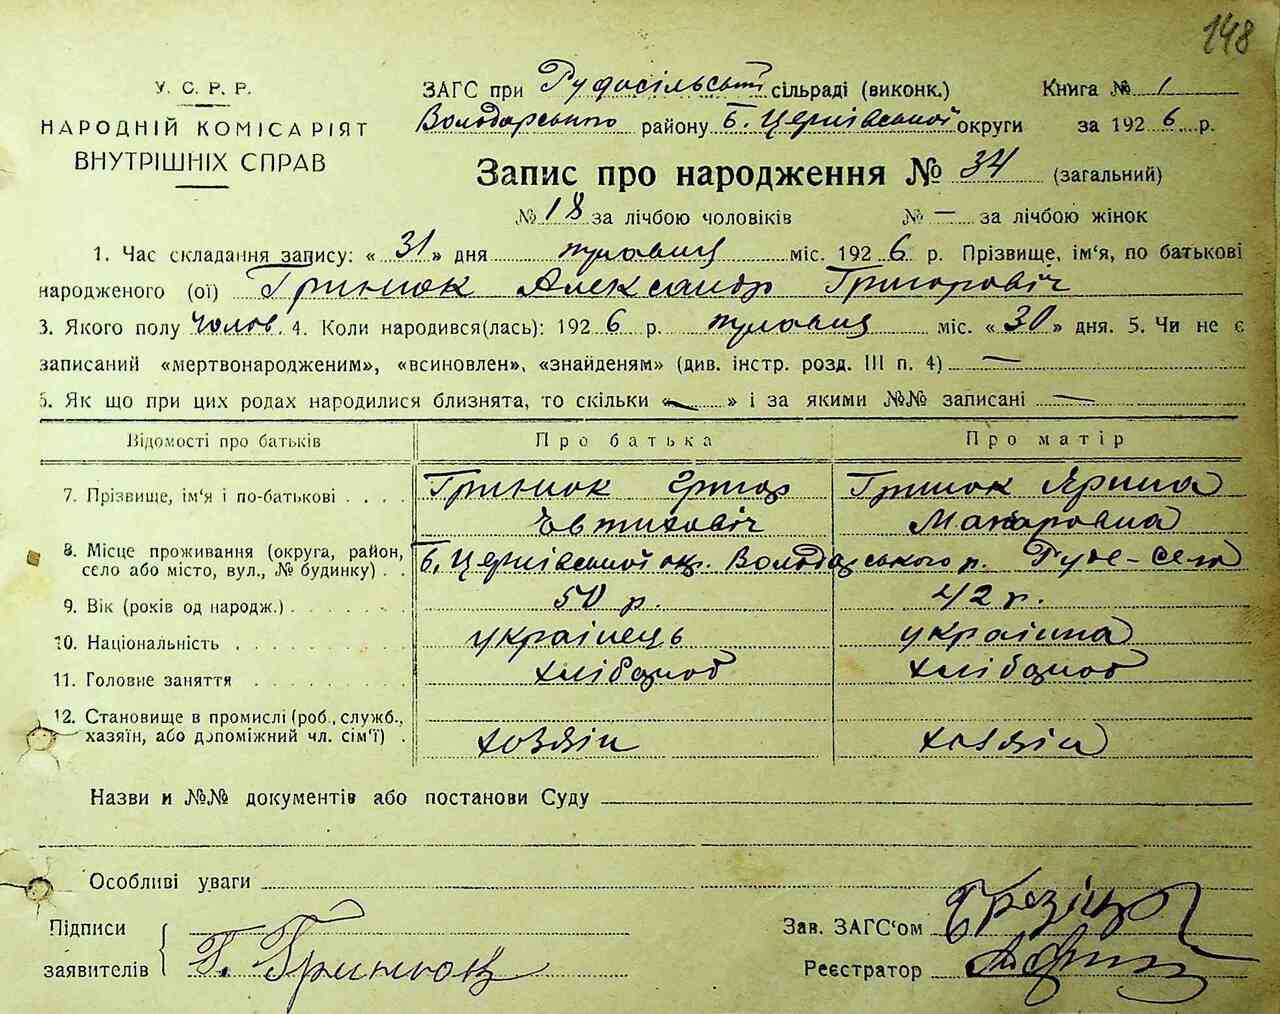 148
У. С. Р. Р.
НАРОДНІЙ КОМІСАРІЯТ
ВНУТРІШНІХ СПРАВ
ЗАГС при Рудосільські сільраді (виконк.) Книга № 1
Володарського району Б. Церківської округи за 1926 р.
Запис про народження № 34 (загальний)
№ 18 за лічбою чоловіків № — за лічбою жінок
1. Час складання запису: « 31 » дня травня міс. 1926 р. Прізвище, ім'я, по батькові
народженого (ої) Гринюк Александр Григоровіч
3. Якого полу чолов. 4. Коли народився(лась): 1926 р. травня міс. « 30 » дня. 5. Чи не є
записаний «мертвонародженим», «всиновлен», «знайденям» (див. інстр. розд. III п. 4) —
5. Як що при цих родах народилися близнята, то скільки « — » і за якими №№ записані —
Відомості про батьків Про батька Про матір
7. Прізвище, ім'я і по-батькові . . . . Гринюк Григор Гринюк Ярина
Євтиховіч Макаровна
8. Місце проживання (округа, район,
село або місто, вул., № будинку) . . Б. Церківської окр. Володарського р. Руде-село
9. Вік (років од народж.) 50 р. 42 р.
10. Національність українець українка
11. Головне заняття хлібороб хлібороб
12. Становище в промислі (роб., служб.,
хазяїн, або допоміжний чл. сім'ї) . хозяін хозяін
Назви и №№ документів або постанови Суду
Особливі уваги
Підписи
заявителів Г. Гринюк
Зав. ЗАГС'ом
Реєстратор